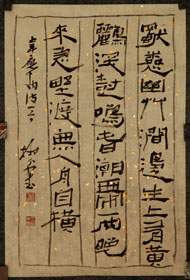 獨憐幽艸澗邊生上有黃
鸝深樹鳴春潮帶雨晚
來急野渡無人舟自橫